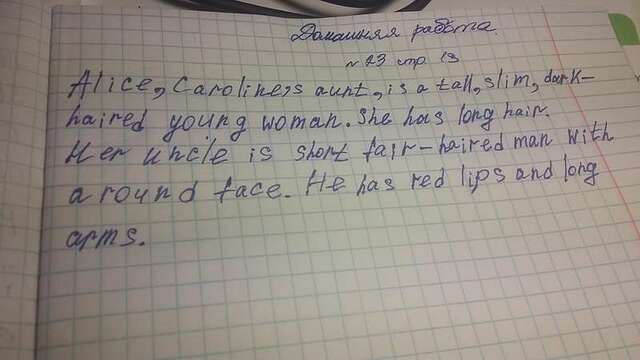 Домашняя работа
№ 23 стр. 13
Alice, Caroline,s aunt, is a tall, slim, dark-
haired young woman. She has long hair.
Her uncle is short fair-haired man with
a round face. He has red lips and long
arms.